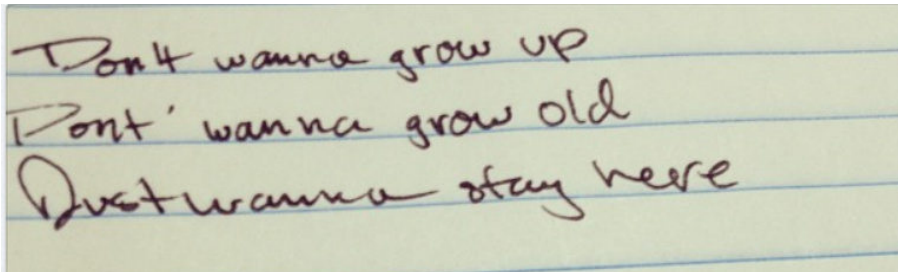 Don't wanna grow up
Dont' wanna grow old
Just wanna stay here